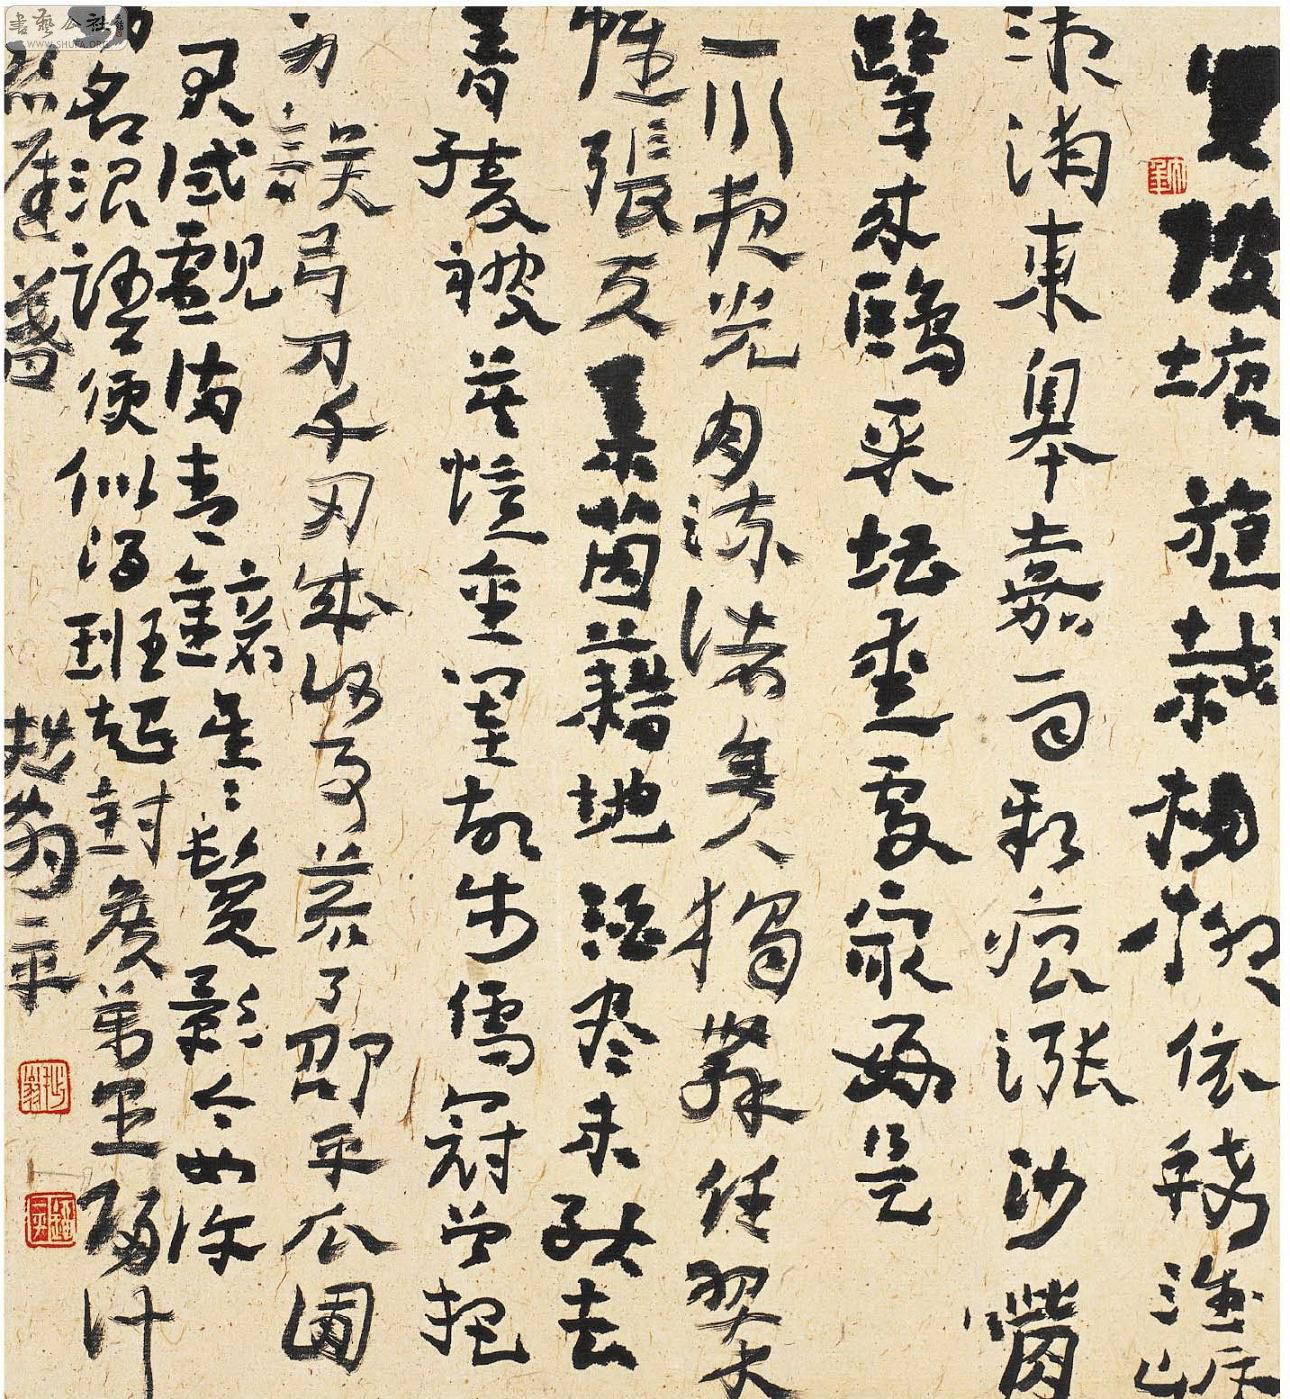 買陂塘旋栽楊柳依稀淮岸
湘浦東皋嘉雨新痕漲沙觜
鷺來鷗聚堪愛處最好是
一川夜光月流渚無人獨舞任翠
幄張天柔茵藉地酒盡未能去
青綾被莫憶金閨故步儒冠曾把
身誤弓刀千刃成何事荒了邵平瓜圃
君試覷滿青鏡星星鬢影今如許
功名浪語便似得班超封侯萬里歸計
恐遲暮
書藝公社
WWW.SHUFA.ORG